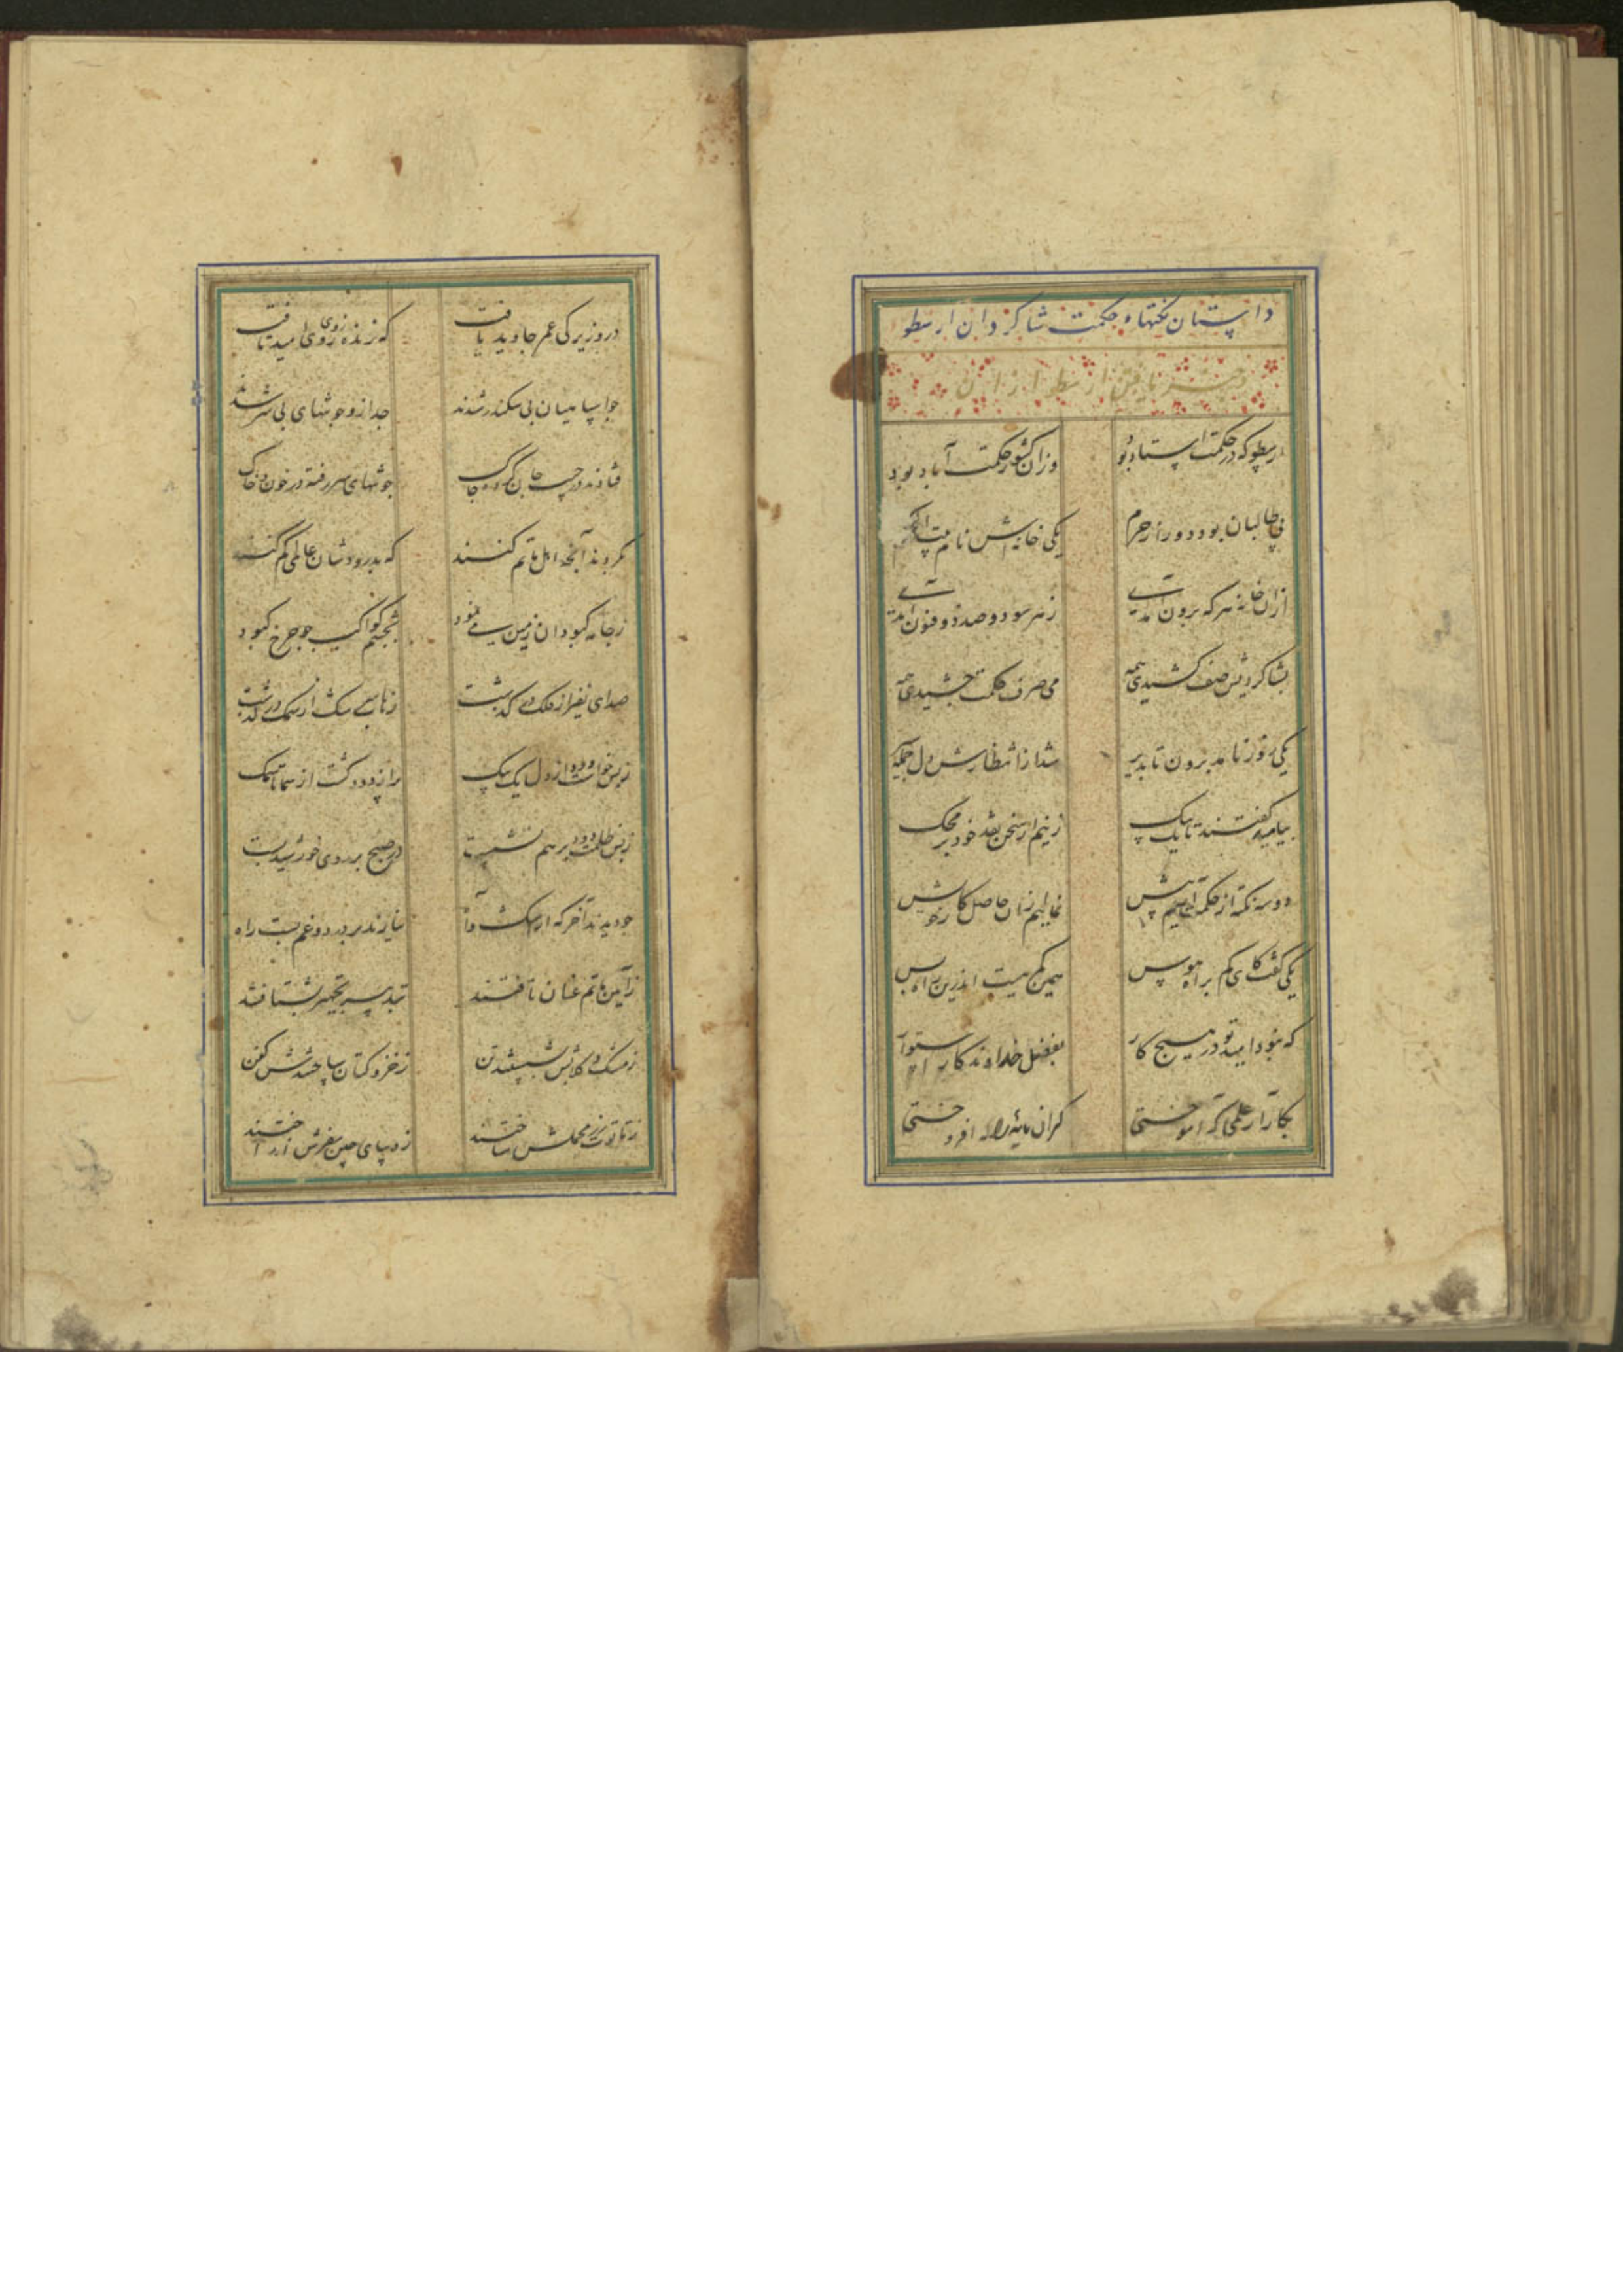 داستان نکتهاء حکمت شاکردان ارسطو
و خبر یافتن ارسطو از آن
ارسطو که در حکمت استاد بود وزان کشور حکمت آباد بود
پی طالبان بود دور از حرم یکی خانه‌اش نام
ازان خانه هر که برون آمدی ز هر سو دو صد ذو فنون آمدی
بشاکردیش صف کشیدی همه می صرف حکمت چشیدی همه
یکی روز نامد برون تا بدیر شد از انتظارش دل جمله سیر
بیایید گفتند تا یک بیک زنیم از سخن نقد خود بر محک
دو سه نکته از حکمت آریم پیش نماییم زان حاصل کار خویش
یکی گفت کای کم براه هوس همین کم بیت اندرین راه بس
که نبود امید تو در هیچ کار بفضل خداوندکار استوار
بکار آر علمی که آموختی کران مایه را افروختی
درو زیرکی عمر جاوید یافت که زنده ز روی امید تافت
چو اسپاهیان بی سکندر شدند جدا زو چو تنهای بی سر شدند
فتادند در جیب جان کرده چاک چو تنهای سر رفته در خون و خاک
نکردند آنچه اهل ماتم کنند که بدرود شان عالمی کم کنند
ز جامه کبودان زمین می نمود بچشم کواکب چو چرخ کبود
صدای نفیر از فلک می کذشت ز ماهی سرشک از سمک در کذشت
ز بس خواست دود از دل یک بیک پر از دود کشت از سما تا سمک
ز بس ظلمت دود بر هم نشست در صبح بر روی خورشید بست
چو دیدند آخر که از اشک و آه نیارند بر درد و غم بست راه
ز آیین ماتم عنان تافتند بتدبیر تجهیز بشتافتند
ز مشک و کلابش بشستند تن ز خز و کتان ساختندش کفن
ز تابوت زر محملش ساختند ز دیبای چین مفرش انداختند